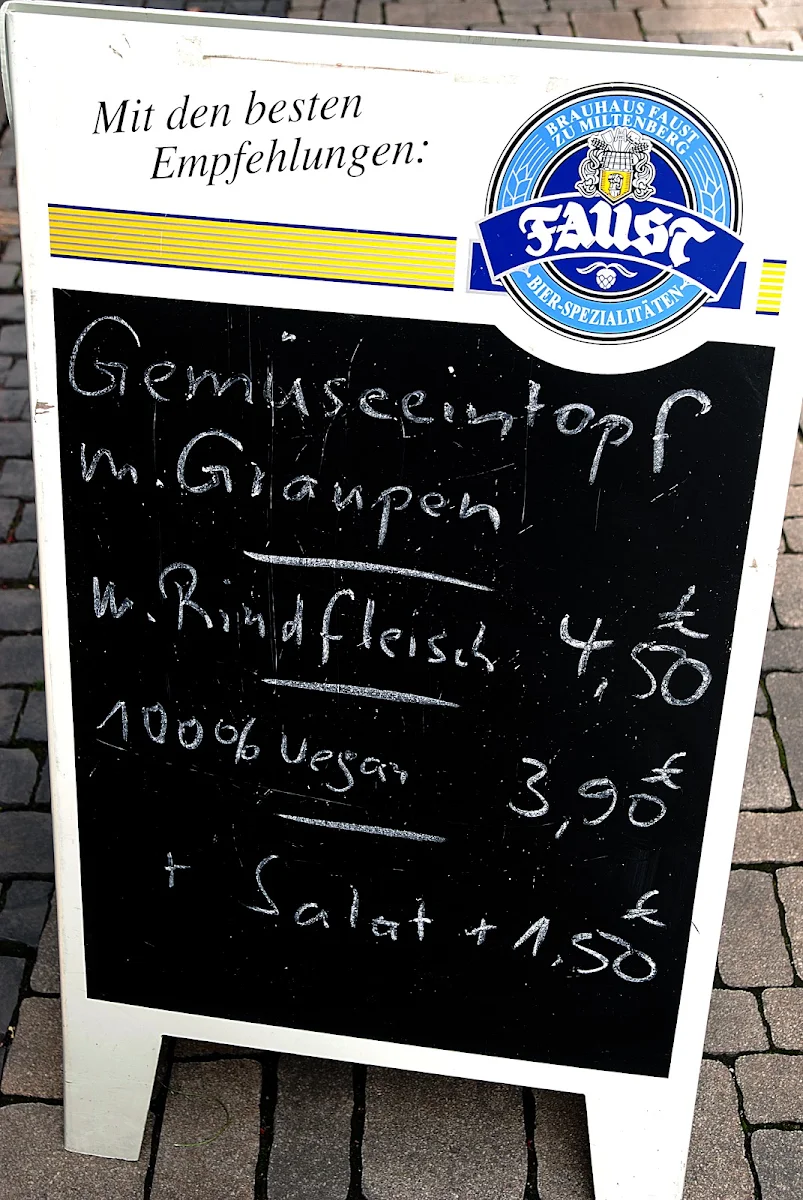 Mit den besten
Empfehlungen:
BRAUHAUS FAUST
ZU MILTENBERG
FAUST
BIER-SPEZIALITÄTEN
Gemüseeintopf
m. Graupen
m. Rindfleisch 4,50 €
100% vegan 3,90 €
+ Salat + 1,50 €